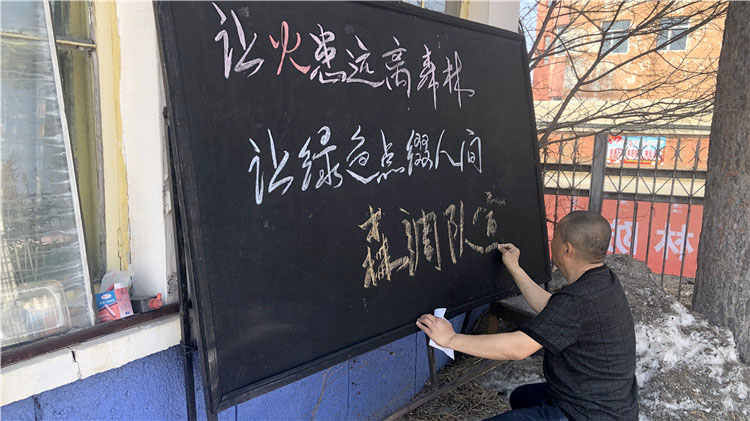 让火患远离森林
让绿色点缀人间
森调队宣